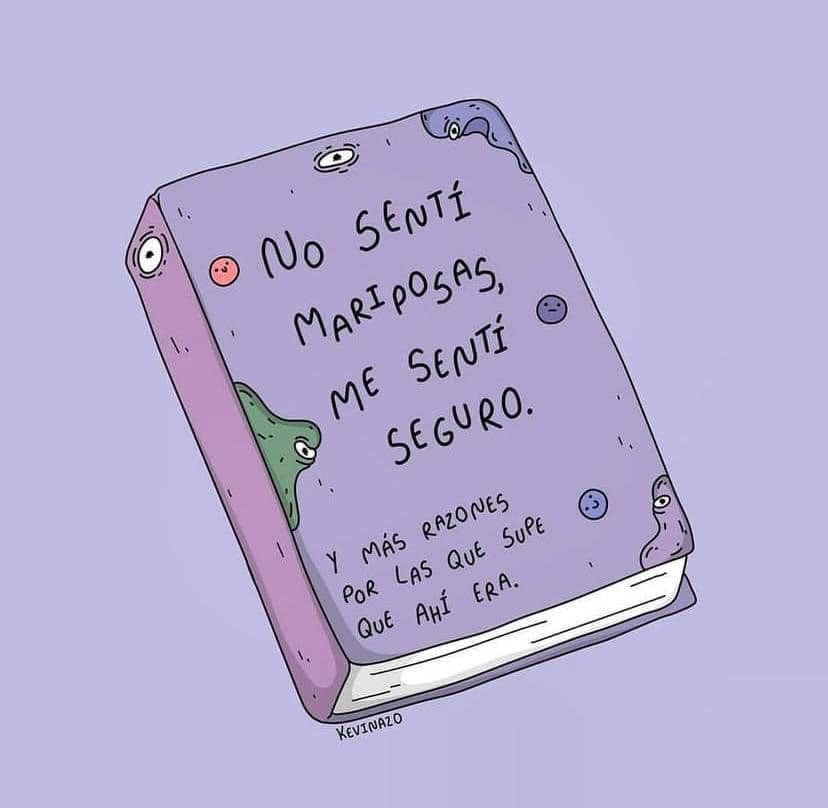 NO SENTÍ
MARIPOSAS,
ME SENTÍ
SEGURO.
Y MÁS RAZONES
POR LAS QUE SUPE
QUE AHÍ ERA.
KEVINAZO